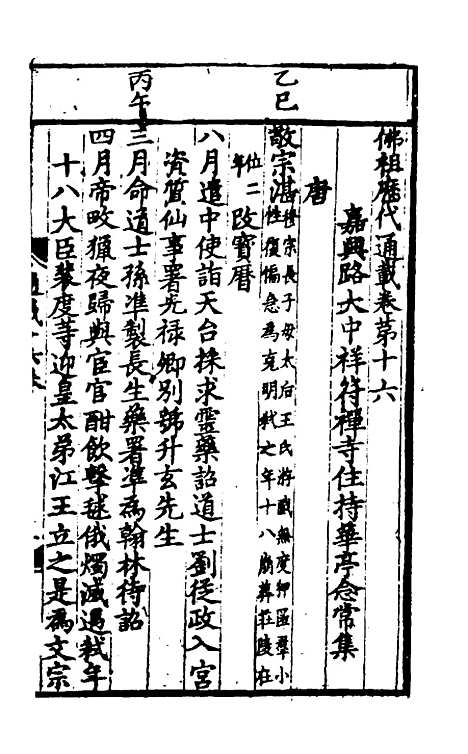 佛祖歷代通載卷第十六
嘉興路大中祥符禪寺住持華亭念常集
唐
乙巳
敬宗湛
穆宗長子母太后王氏將戲無度狎匿羣小
性復褊急為克明弒之年十八崩葬莊陵在
位二
年
改寶曆
八月遣中使詣天台採求靈藥詔道士劉從政入宮
資質仙事署光祿卿別號升玄先生
丙午
三月命道士孫準製長生藥署準為翰林待詔
四月帝畋獵夜歸與宦官酣飲擊毬俄燭滅遇弒年
十八大臣裴度等迎皇太弟江王立之是為文宗